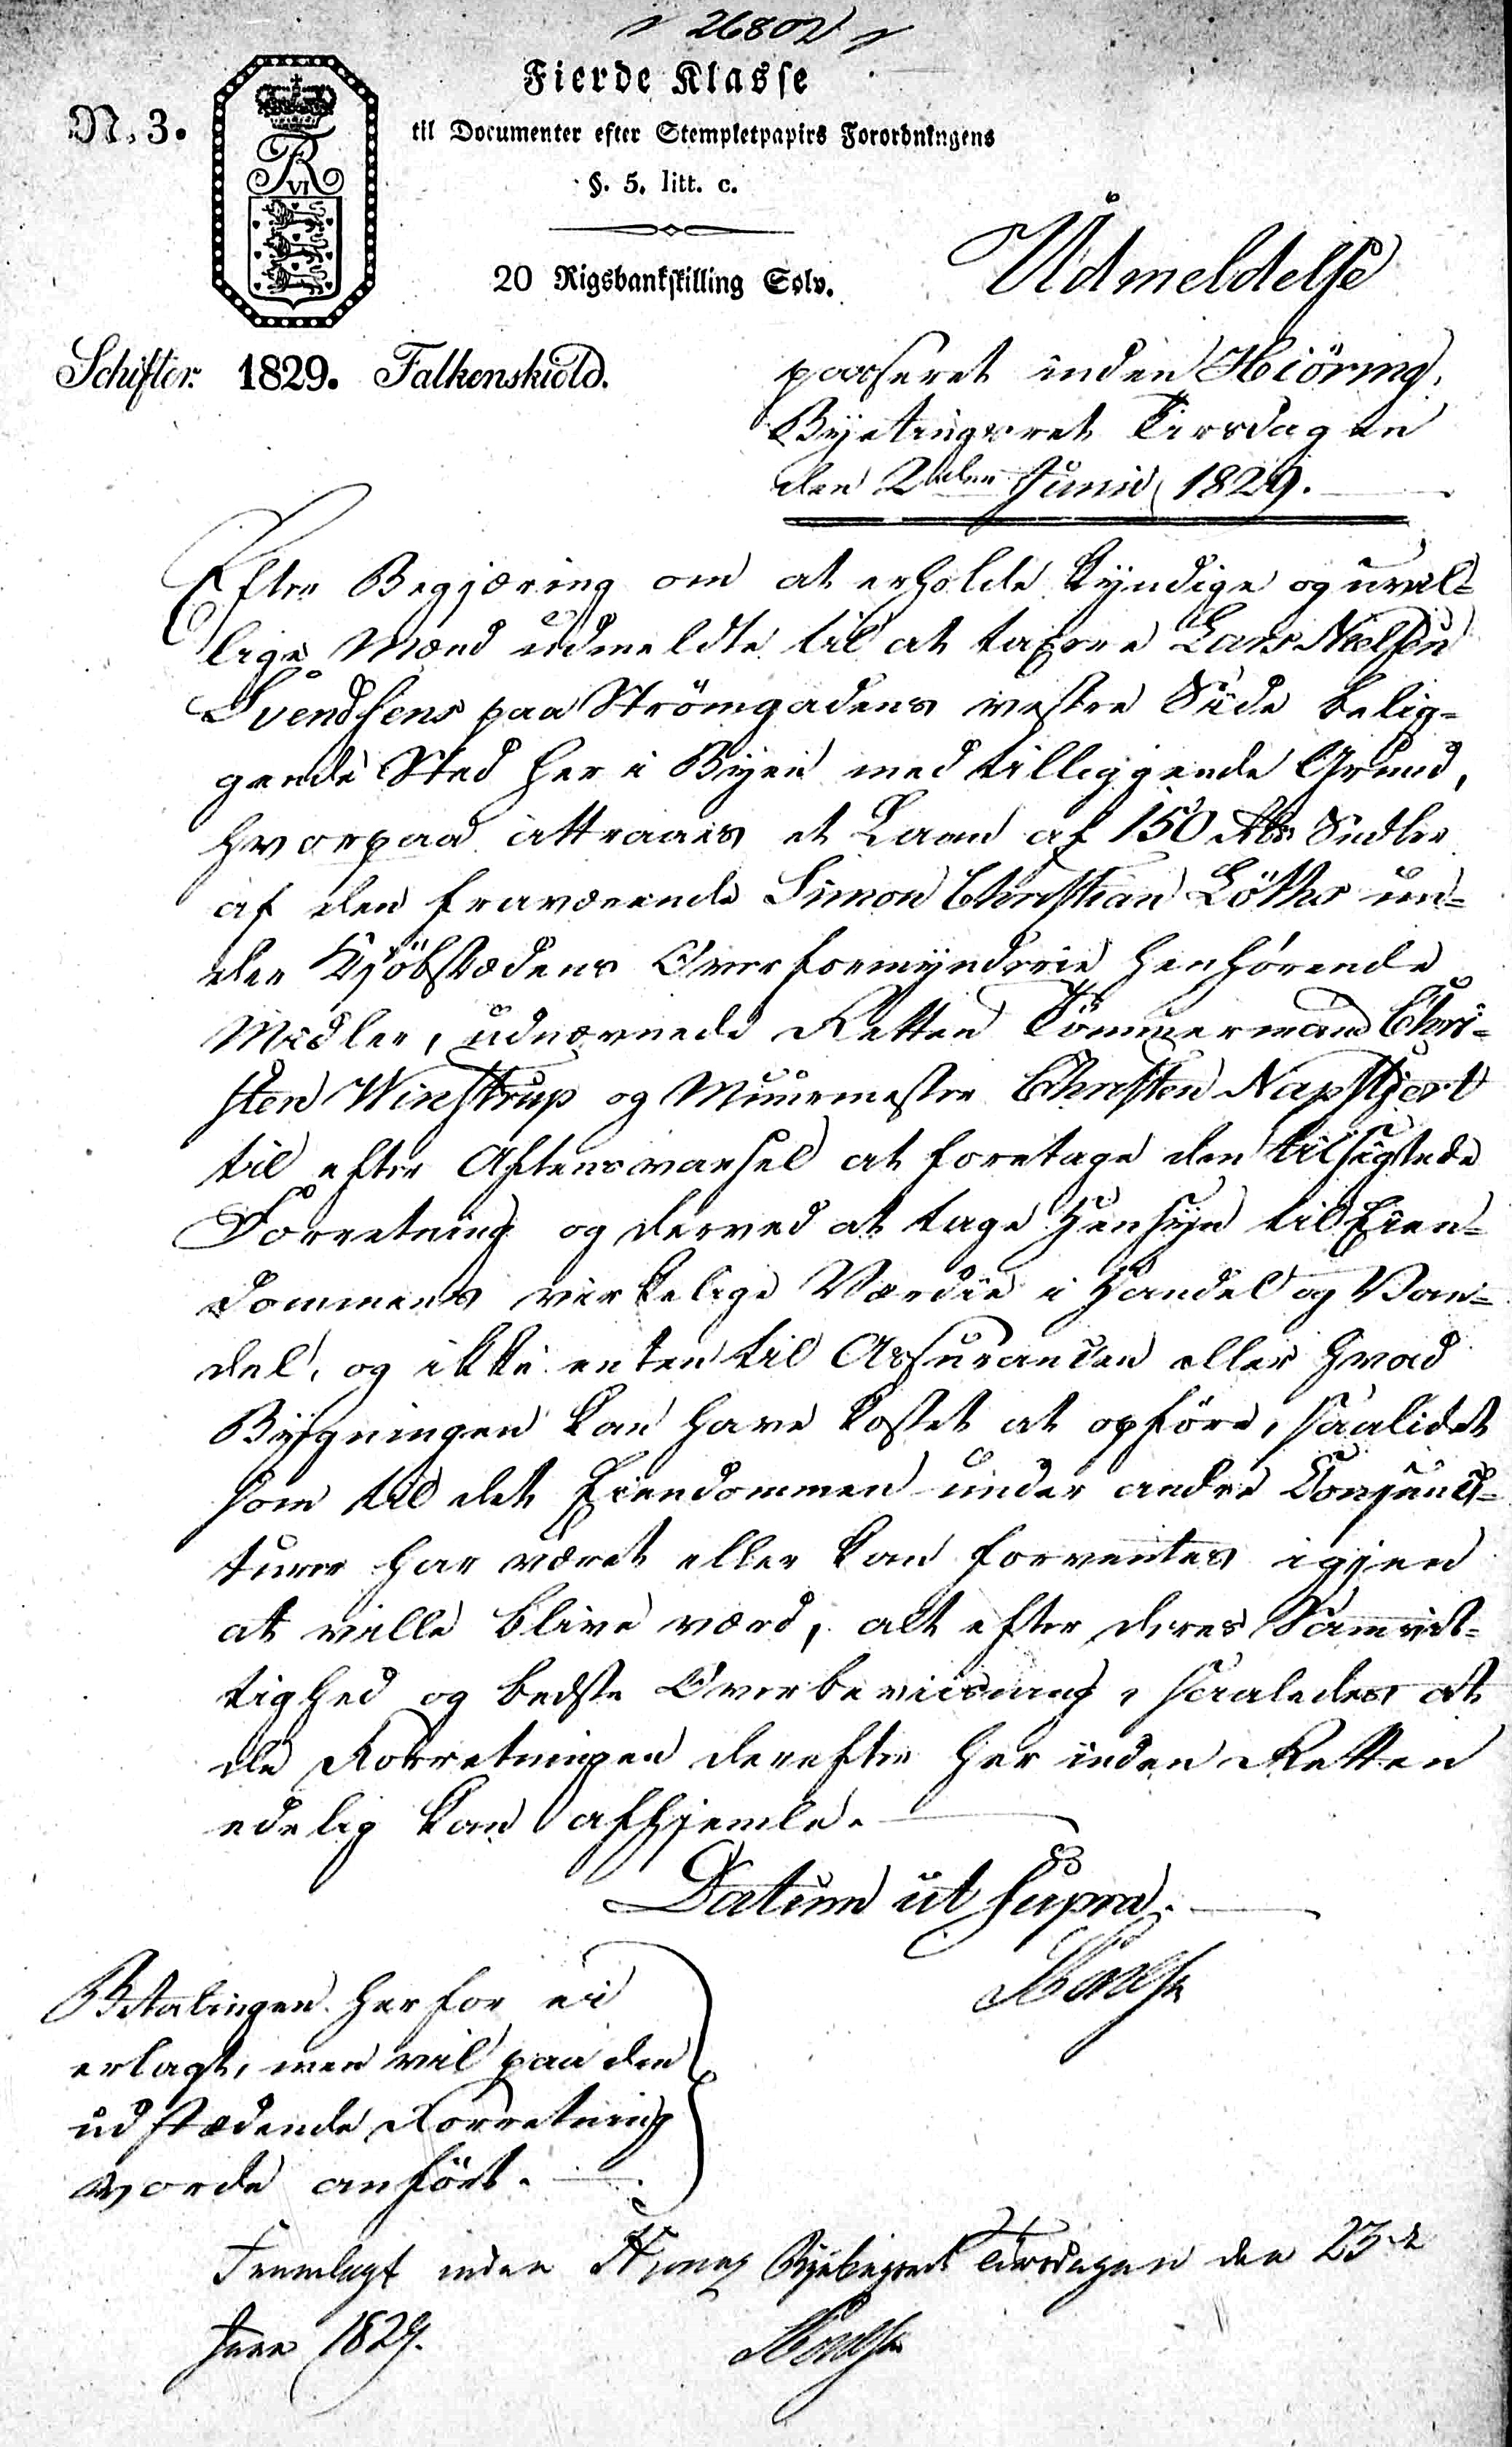 26802
Fierde Klasse
N. 3.
til Documenter efter Stempletpapirs Forordningens
§. 5. litt. c.
FR VI
20 Rigsbankskilling Sølv.
Udmeldelse
Schifter. 1829. Falkenskiold.
passeret inden Hiöring
Byetingsret Tirsdagen
den 2den Junii 1829.
Efter Begjæring om at erholde kyndige og uvil-
lige Mænd udmeldte til at taxere Lars Nielsen
Svendsens paa Strömgadens vestre Side belig-
gende Sted her i Byen med tilliggende Grund,
hvorpaa attraaes et Laan af 150 Rbd Sedler
af den fraværende Simon Christian Löths un-
der Kjöbstædens Overformynderie henhörende
Midler, udnævnede Retten Tömmermand Chri-
sten Winstrup og Muurmester Christen Napstjert
til efter Aftensvarsel at foretage den tilsigtede
Forretning og derved at tage Hensyn til Eien-
dommens virkelige Værdie i Handel og Van-
del, og ikke enten til Assurancen eller hvad
Bygningen kan have kostet at opföre, saalidet
som til det Eiendommen under andre Conjunc-
turer har været eller kan forventes igjen
at ville blive værd, alt efter deres Samvit-
tighed og bedste Overbeviisning, saaledes at
de Forretningen derefter her inden Retten
edelig kan afhjemle.
Datum ut supra.
Betalingen herfor ei
erlagt, men vil paa den
udstædende Forretning
vorde anfört.
Fremlagt inden Hjöring Byetingsret Tirsdagen den 23de
Juni 1829.